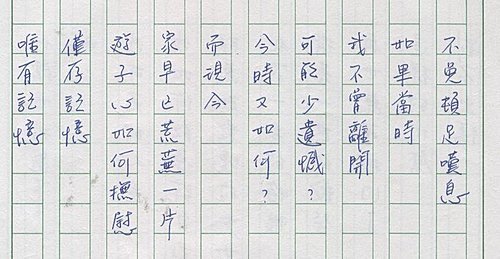 不免頓足嘆息
如畢當時
我不曾離開
可能少遺憾？
今時又如何？
而現今
家早已荒蕪一片
遊子心如何撫慰
僅存記憶
唯有記憶